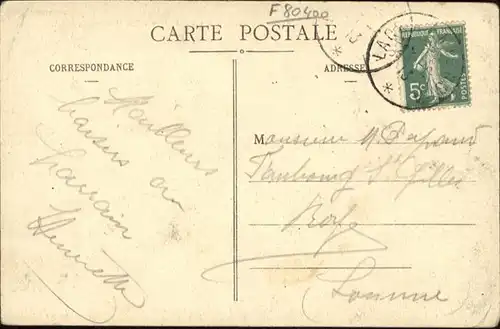 F 80400
CARTE POSTALE
CORRESPONDANCE
ADRESSE
REPUBLIQUE FRANÇAISE
5c
POSTES
Meilleurs
baisers
Henriette
Monsieur
Faubourg St Gilles
Somme